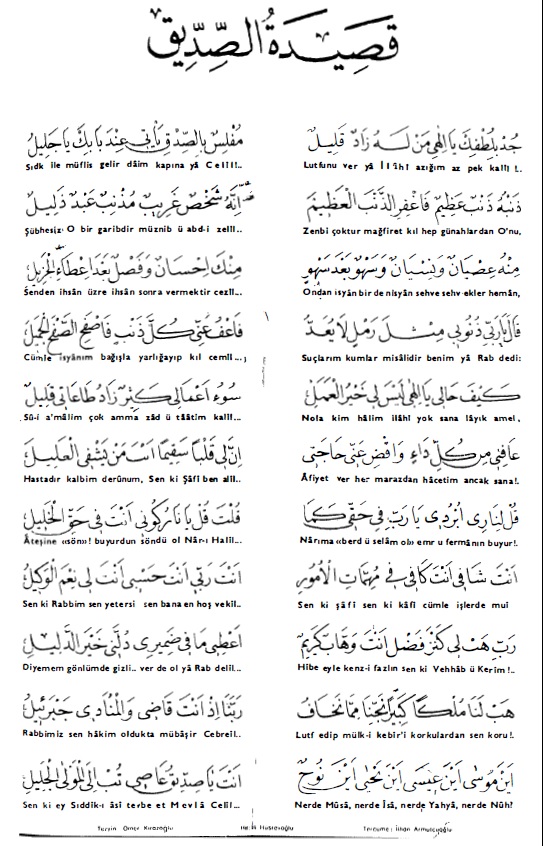 قَصِيدَةُ الصِّدِّيقِ
جُدْ بِلُطْفِكَ يَا اِلٰهِى مَنْ لَهُ زَادٌ قَلِيلٌ
مُفْلِسٌ بِالصِّدْقِ يَأْتِى عِنْدَ بَابِكَ يَا جَلِيلُ
Lutfunu ver yâ İlâhî azığım az pek kalîl!.
Sıdk ile müflis gelir dâim kapına yâ Celîl!..
ذَنْبُهُ ذَنْبٌ عَظِيمٌ فَاغْفِرِ الذَّنْبَ الْعَظِيمَ
اِنَّهُ شَخْصٌ غَرِيبٌ مُذْنِبٌ عَبْدٌ ذَلِيلٌ
Zenbi çoktur mağfiret kıl hep günahlardan O'nu,
Şübhesiz O bir garibdir müznib ü abd-i zelîl...
مِنْهُ عِصْيَانٌ وَنِسْيَانٌ وَسَهْوٌ بَعْدَ سَهْوٍ
مِنْكَ اِحْسَانٌ وَفَضْلٌ بَعْدَ اِعْطَاءِ الْجَزِيلِ
Ondan isyân bir de nisyân sehve sehv ekler hemân,
Senden ihsân üzre ihsân sonra vermektir cezîl...
قَالَ يَا رَبِّى ذُنُوبِى مِثْلَ رَمْلٍ لَا يُعَدُّ
فَاعْفُ عَنِّى كُلَّ ذَنْبٍ فَاصْفَحِ الصَّفْحَ الْجَمِيلَ
Suçlarım kumlar misâlidir benim yâ Rab dedi:
Cümle isyânım bağışla yarlığayıp kıl cemîl...
كَيْفَ حَالِى يَا اِلٰهِى لَيْسَ لِى خَيْرُ الْعَمَلِ
سُوءُ اَعْمَالِى كَثِيرٌ زَادُ طَاعَاتِى قَلِيلٌ
Nola kim hâlim ilâhî yok sana lâyık amel,
Sû-i a'mâlim çok amma zâd ü tâatim kalîl...
عَافِنِى مِنْ كُلِّ دَاءٍ وَاقْضِ عَنِّى حَاجَتِى
اِنَّ لِى قَلْبًا سَقِيمًا اَنْتَ مَنْ يَشْفِى الْعَلِيلَ
Âfiyet ver her marazdan hâcetim ancak sana!.
Hastadır kalbim derûnum, Sen ki Şâfi ben alîl..
قُلْ لِنَارِى اُبْرُدِى يَا رَبِّ فِى حَقِّى كَمَا
قُلْتَ قُلْ يَا نَارُ كُونِى اَنْتَ فِى حَقِّ الْخَلِيلِ
Nârıma «berd ü selâm ol» emr u fermânın buyur!.
Âteşine «sön»! buyurdun söndü ol Nâr-ı Halîl...
اَنْتَ شَافِى اَنْتَ كَافِى فِى مُهِمَّاتِ الْاُمُورِ
اَنْتَ رَبِّى اَنْتَ حَسْبِى اَنْتَ لِى نِعْمَ الْوَكِيلُ
Sen ki şâfi sen ki kâfi cümle işlerde mui
Sen ki Rabbim sen yetersi sen bana en hoş vekîl..
رَبِّ هَبْ لِى كَنْزَ فَضْلٍ اَنْتَ وَهَّابٌ كَرِيمٌ
اَعْطِنِى مَا فِى ضَمِيرِى دُلَّنِى خَيْرَ الدَّلِيلِ
Hibe eyle kenz-i fazlın sen ki Vehhâb ü Kerîm!..
Diyemem gönlümde gizli.. ver de ol yâ Rab delîl...
هَبْ لَنَا مُلْكًا كَبِيرًا نَجِّنَا مِمَّا نَخَافُ
رَبَّنَا اِذْ اَنْتَ قَاضِى وَالْمُنَادِى جَبْرَئِيلُ
Lutf edip mülk-i kebîr'i korkulardan sen koru!.
Rabbimiz sen hâkim oldukta mübâşir Cebreîl..
اَيْنَ مُوسٰى اَيْنَ عِيسٰى اَيْنَ يَحْيٰى اَيْنَ نُوحٌ
اَنْتَ يَا صِدِّيقُ عَاصِى تُبْ اِلَى الْمَوْلَى الْجَلِيلِ
Nerde Mûsâ, nerde Îsâ, nerde Yahyâ, nerde Nûh?
Sen ki ey Sıddîk-ı âsi tevbe et Mevlâ Celîl...
Tercüme: İlhan Armutçuoğlu
Tanzim Ömer Kirazoğlu